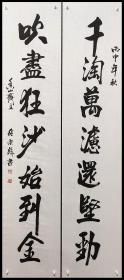 丙申年秋
千淘萬漉還堅勁
吹盡狂沙始到金